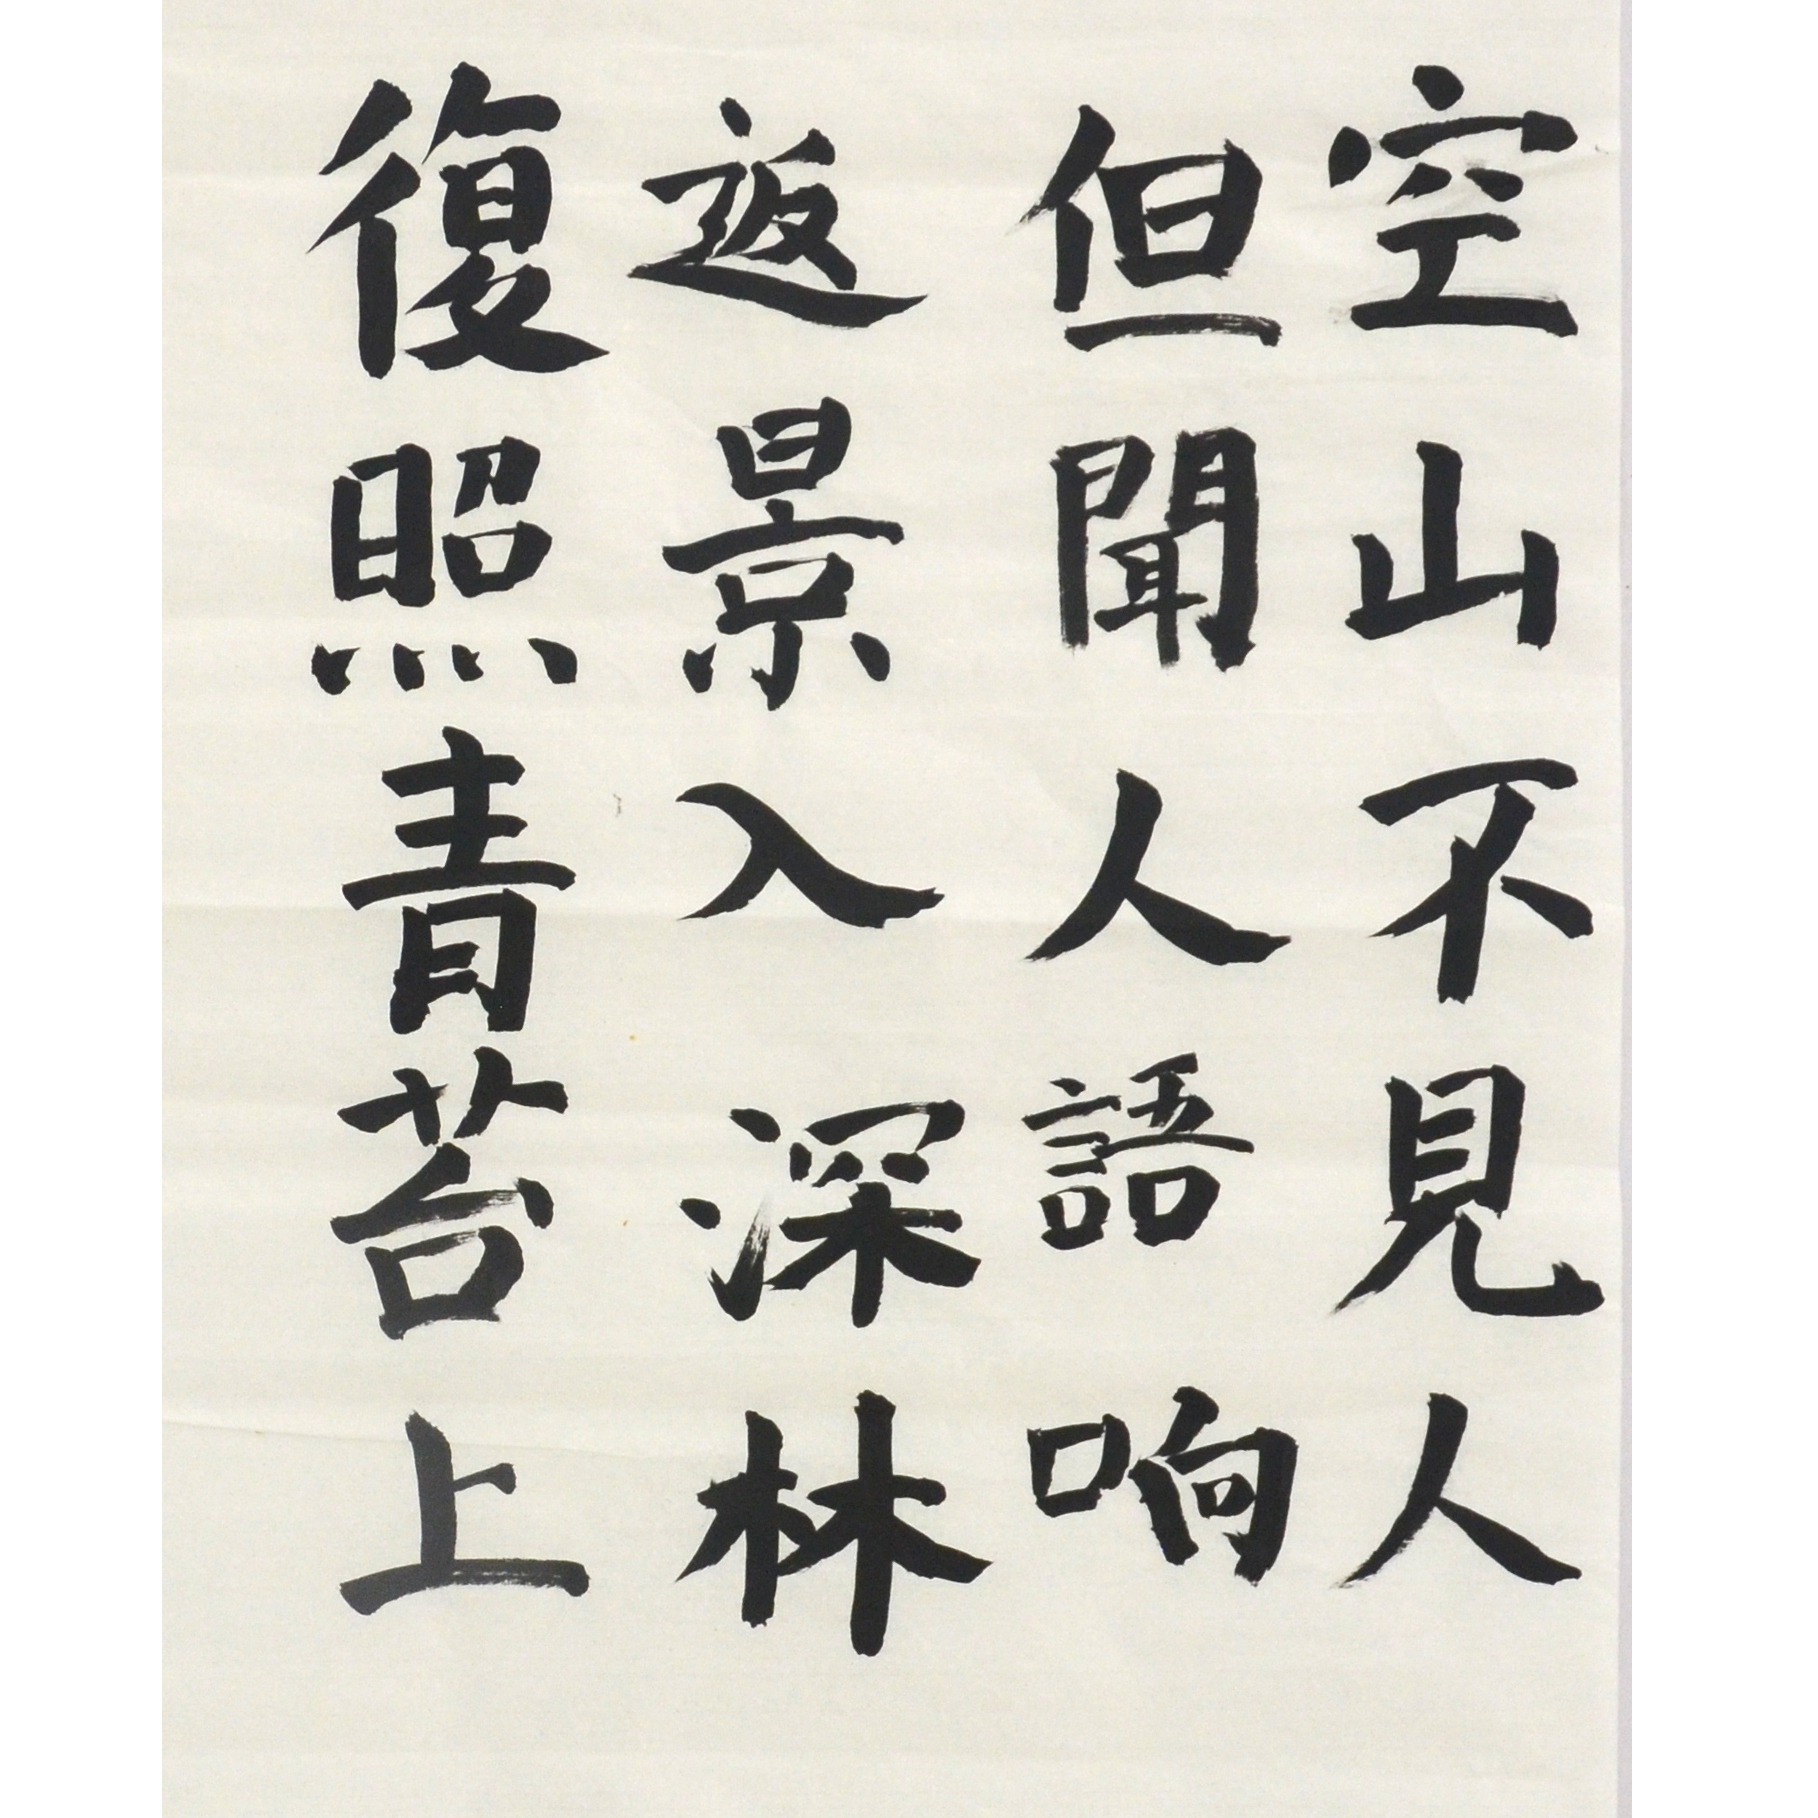 空山不見人
但聞人語响
返景入深林
復照青苔上